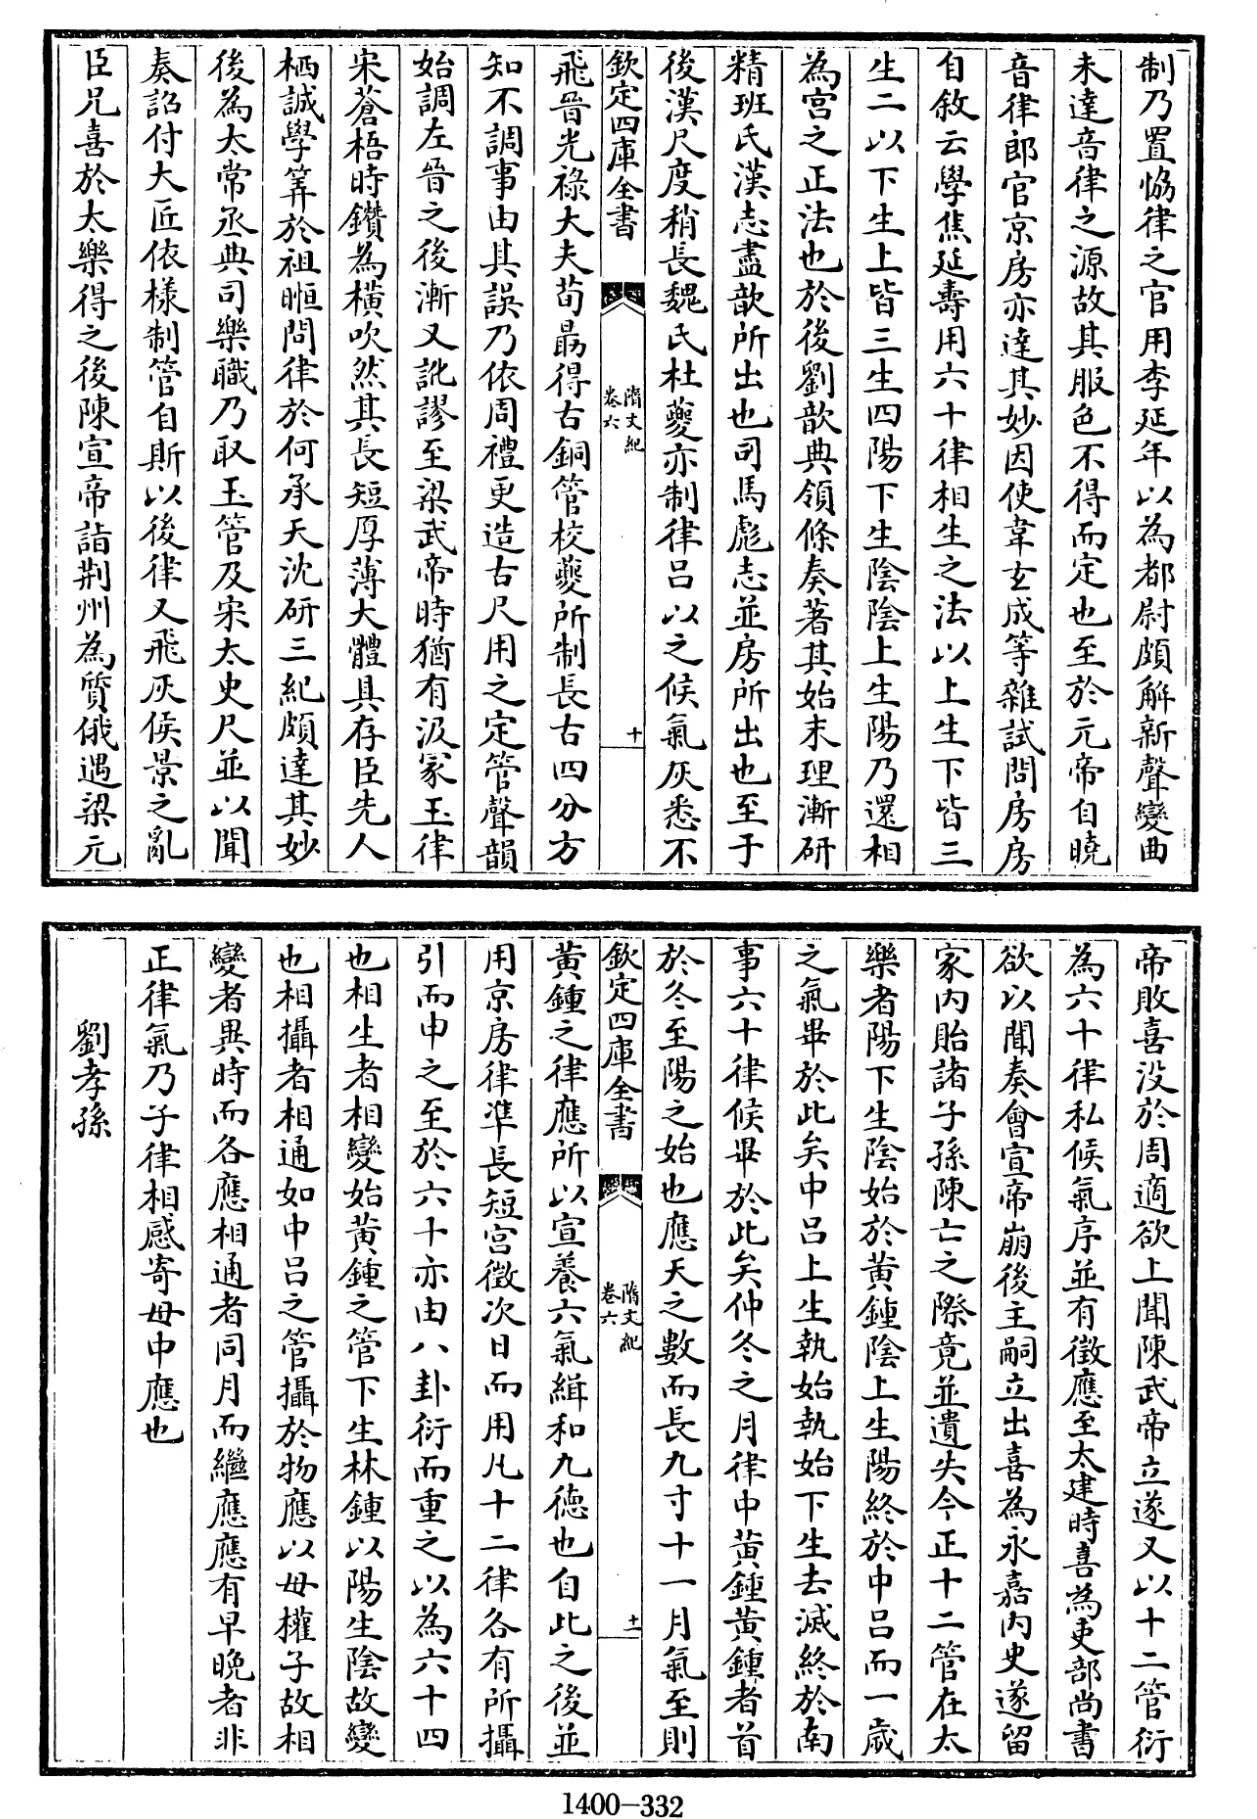 制乃置協律之官用李延年以為都尉頗解新聲變曲
未達音律之源故其服色不得而定也至於元帝自曉
音律郎官京房亦達其妙因使韋玄成等雜試問房房
自敘云學焦延壽用六十律相生之法以上生下皆三
生二以下生上皆三生四陽下生陰陰上生陽乃還相
為宮之正法也於後劉歆典領條奏著其始末理漸研
精班氏漢志盡歆所出也司馬彪志並房所出也至于
後漢尺度稍長魏氏杜夔亦制律呂以之候氣灰悉不
欽定四庫全書
隋文紀
卷六
十
飛晉光祿大夫荀勗得古銅管校夔所制長古四分方
知不調事由其誤乃依周禮更造古尺用之定管聲韻
始調左晉之後漸又訛謬至梁武帝時猶有汲冢玉律
宋蒼梧時鑽為橫吹然其長短厚薄大體具存臣先人
栖誠學筭於祖暅問律於何承天沈研三紀頗達其妙
後為太常丞典司樂職乃取玉管及宋太史尺並以聞
奏詔付大匠依樣制管自斯以後律又飛灰侯景之亂
臣兄喜於太樂得之後陳宣帝詣荆州為質俄遇梁元
帝敗喜沒於周適欲上聞陳武帝立遂又以十二管衍
為六十律私候氣序並有徵應至太建時喜為吏部尚書
欲以聞奏會宣帝崩後主嗣立出喜為永嘉內史遂留
家內貽諸子孫陳亡之際竟並遺失今正十二管在太
樂者陽下生陰始於黃鍾陰上生陽終於中呂而一歲
之氣畢於此矣中呂上生執始執始下生去滅終於南
事六十律候畢於此矣仲冬之月律中黃鍾黃鍾者首
於冬至陽之始也應天之數而長九寸十一月氣至則
欽定四庫全書
隋文紀
卷六
十一
黃鍾之律應所以宣養六氣緝和九德也自此之後並
用京房律準長短宮徵次日而用凡十二律各有所攝
引而申之至於六十亦由八卦衍而重之以為六十四
也相生者相變始黃鍾之管下生林鍾以陽生陰故變
也相攝者相通如中呂之管攝於物應以母權子故相
變者異時而各應相通者同月而繼應應有早晚者非
正律氣乃子律相感寄母中應也
劉孝孫
1400-332